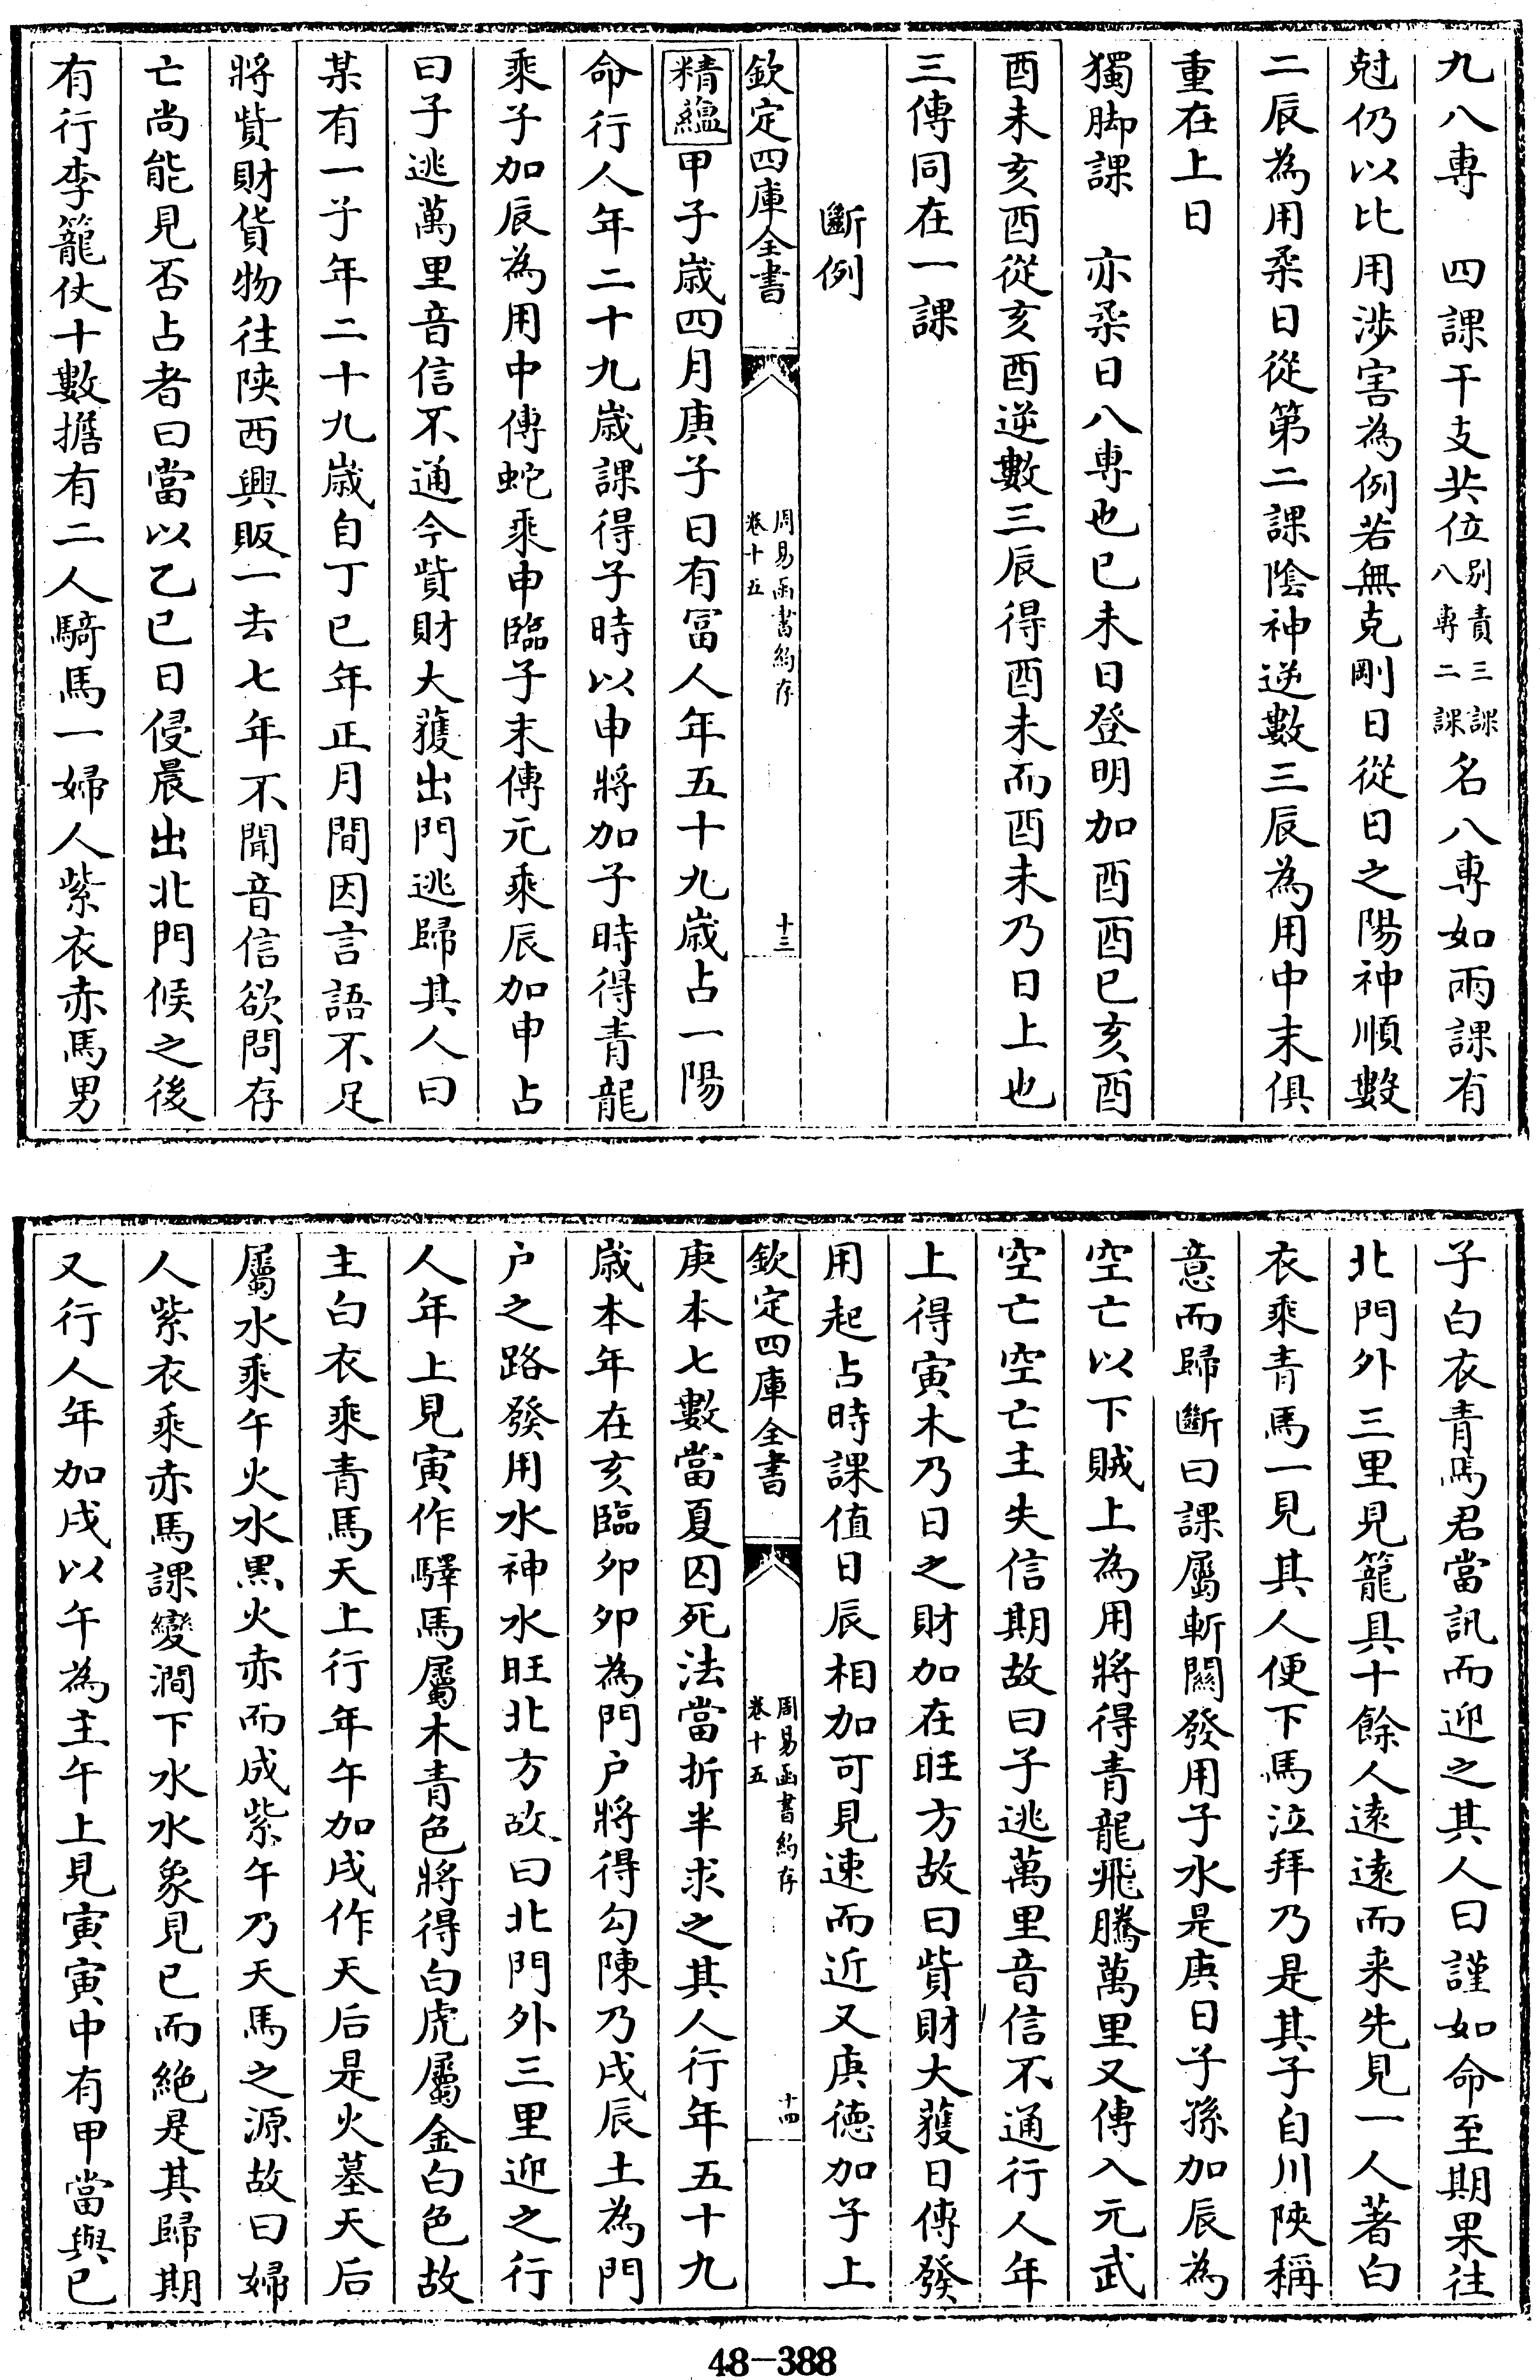 九八專　四課干支共位别責三課八專二課名八專如兩課有
尅仍以比用涉害為例若無克剛日從日之陽神順數
二辰為用柔日從第二課陰神逆數三辰為用中末俱
重在上日
獨脚課　亦柔日八專也已未日登明加酉酉巳亥酉
酉未亥酉從亥酉酉逆數三辰得酉未而酉未乃日上也
三傳同在一課
斷例
欽定四庫全書
周易函書約存
卷十五
十三
精蘊甲子歲四月庚子日有冨人年五十九歲占一陽
命行人年二十九歲課得子時以申將加子時得青龍
乘子加辰為用中傳蛇乘申臨子末傳元乘辰加申占
曰子逃萬里音信不通今貲財大獲出門逃歸其人曰
某有一子年二十九歲自丁巳年正月間因言語不足
將貲財貨物往陝西興販一去七年不聞音信欲問存
亡尚能見否占者曰當以乙巳日侵晨出北門候之後
有行李籠仗十數擔有二人騎馬一婦人紫衣赤馬男
子白衣青馬君當訊而迎之其人曰謹如命至期果往
北門外三里見籠具十餘人遠遠而来先見一人著白
衣乘青馬一見其人便下馬泣拜乃是其子自川陝稱
意而歸斷曰課屬斬關發用子水是庚日子孫加辰為
空亡以下賊上為用將得青龍飛騰萬里又傳入元武
空亡空亡主失信期故曰子逃萬里音信不通行人年
上得寅木乃日之財加在旺方故曰貲財大獲日傳發
用起占時課值日辰相加可見速而近又庚德加子上
欽定四庫全書
周易函書約存
卷十五
十四
庚本七數當夏囚死法當折半求之其人行年五十九
歲本年在亥臨卯卯為門户將得勾陳乃戌辰土為門
户之路發用水神水旺北方故曰北門外三里迎之行
人年上見寅作驛馬屬木青色將得白虎屬金白色故
主白衣乘青馬天上行年午加戌作天后是火墓天后
屬水乘午火水黒火赤而成紫午乃天馬之源故曰婦
人紫衣乘赤馬課變澗下水水象見巳而絶是其歸期
又行人年加戌以午為主午上見寅寅中有甲當與己